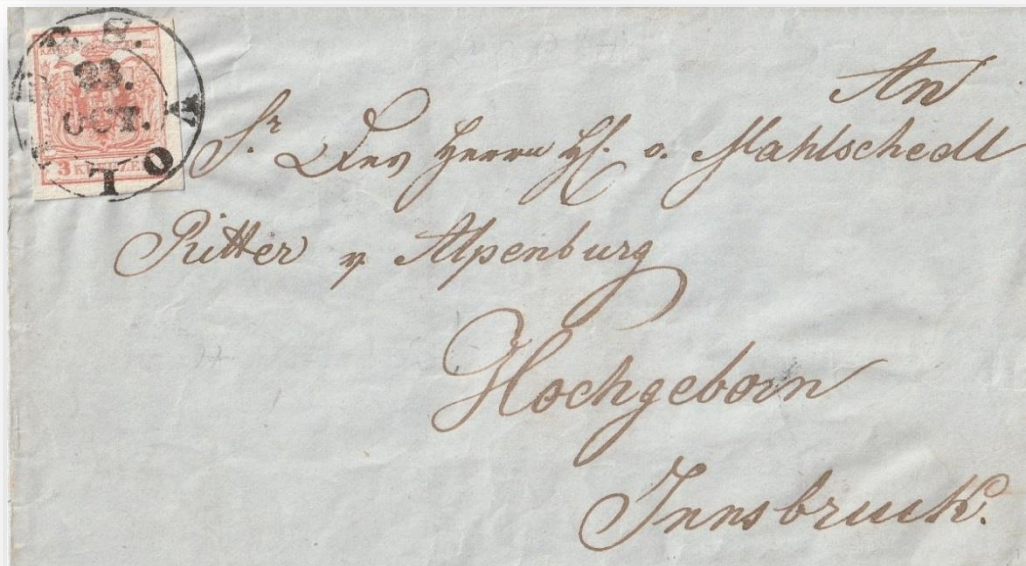 23.
OCT.
3 KREUZER
An
Sr
Herrn v. Mahlschedl
Ritter v Alpenburg
Hochgeborn
Innsbruck.